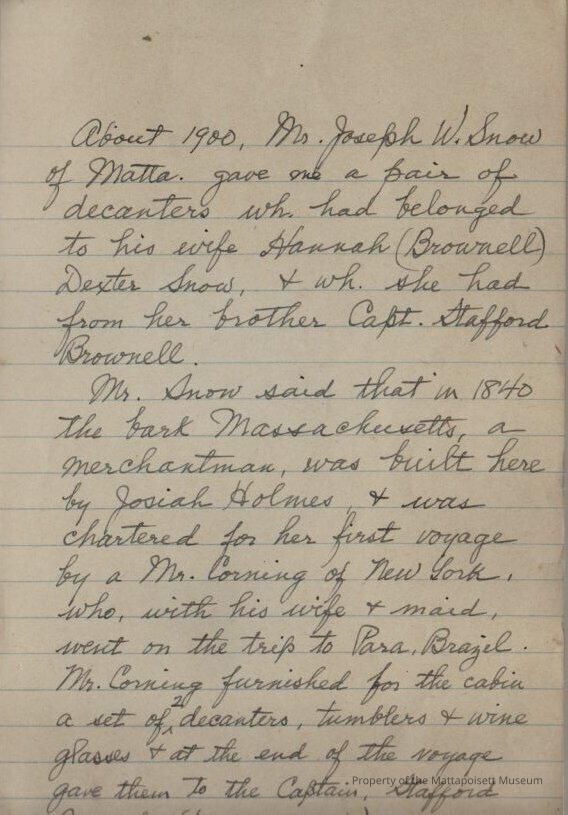 About 1900, Mr. Joseph W. Snow
of Matta. gave me a pair of
decanters wh. had belonged
to his wife Hannah (Brownell)
Dexter Snow, & wh. she had
from her brother Capt. Stafford
Brownell.
Mr. Snow said that in 1840
the bark Massachusetts, a
merchantman, was built here
by Josiah Holmes, & was
chartered for her first voyage
by a Mr. Corning of New York,
who, with his wife & maid,
went on the trip to Para, Brazil.
Mr. Corning furnished for the cabin
a set of 2 decanters, tumblers & wine
glasses & at the end of the voyage
Property of the Mattapoisett Museum
gave them to the Captain, Stafford